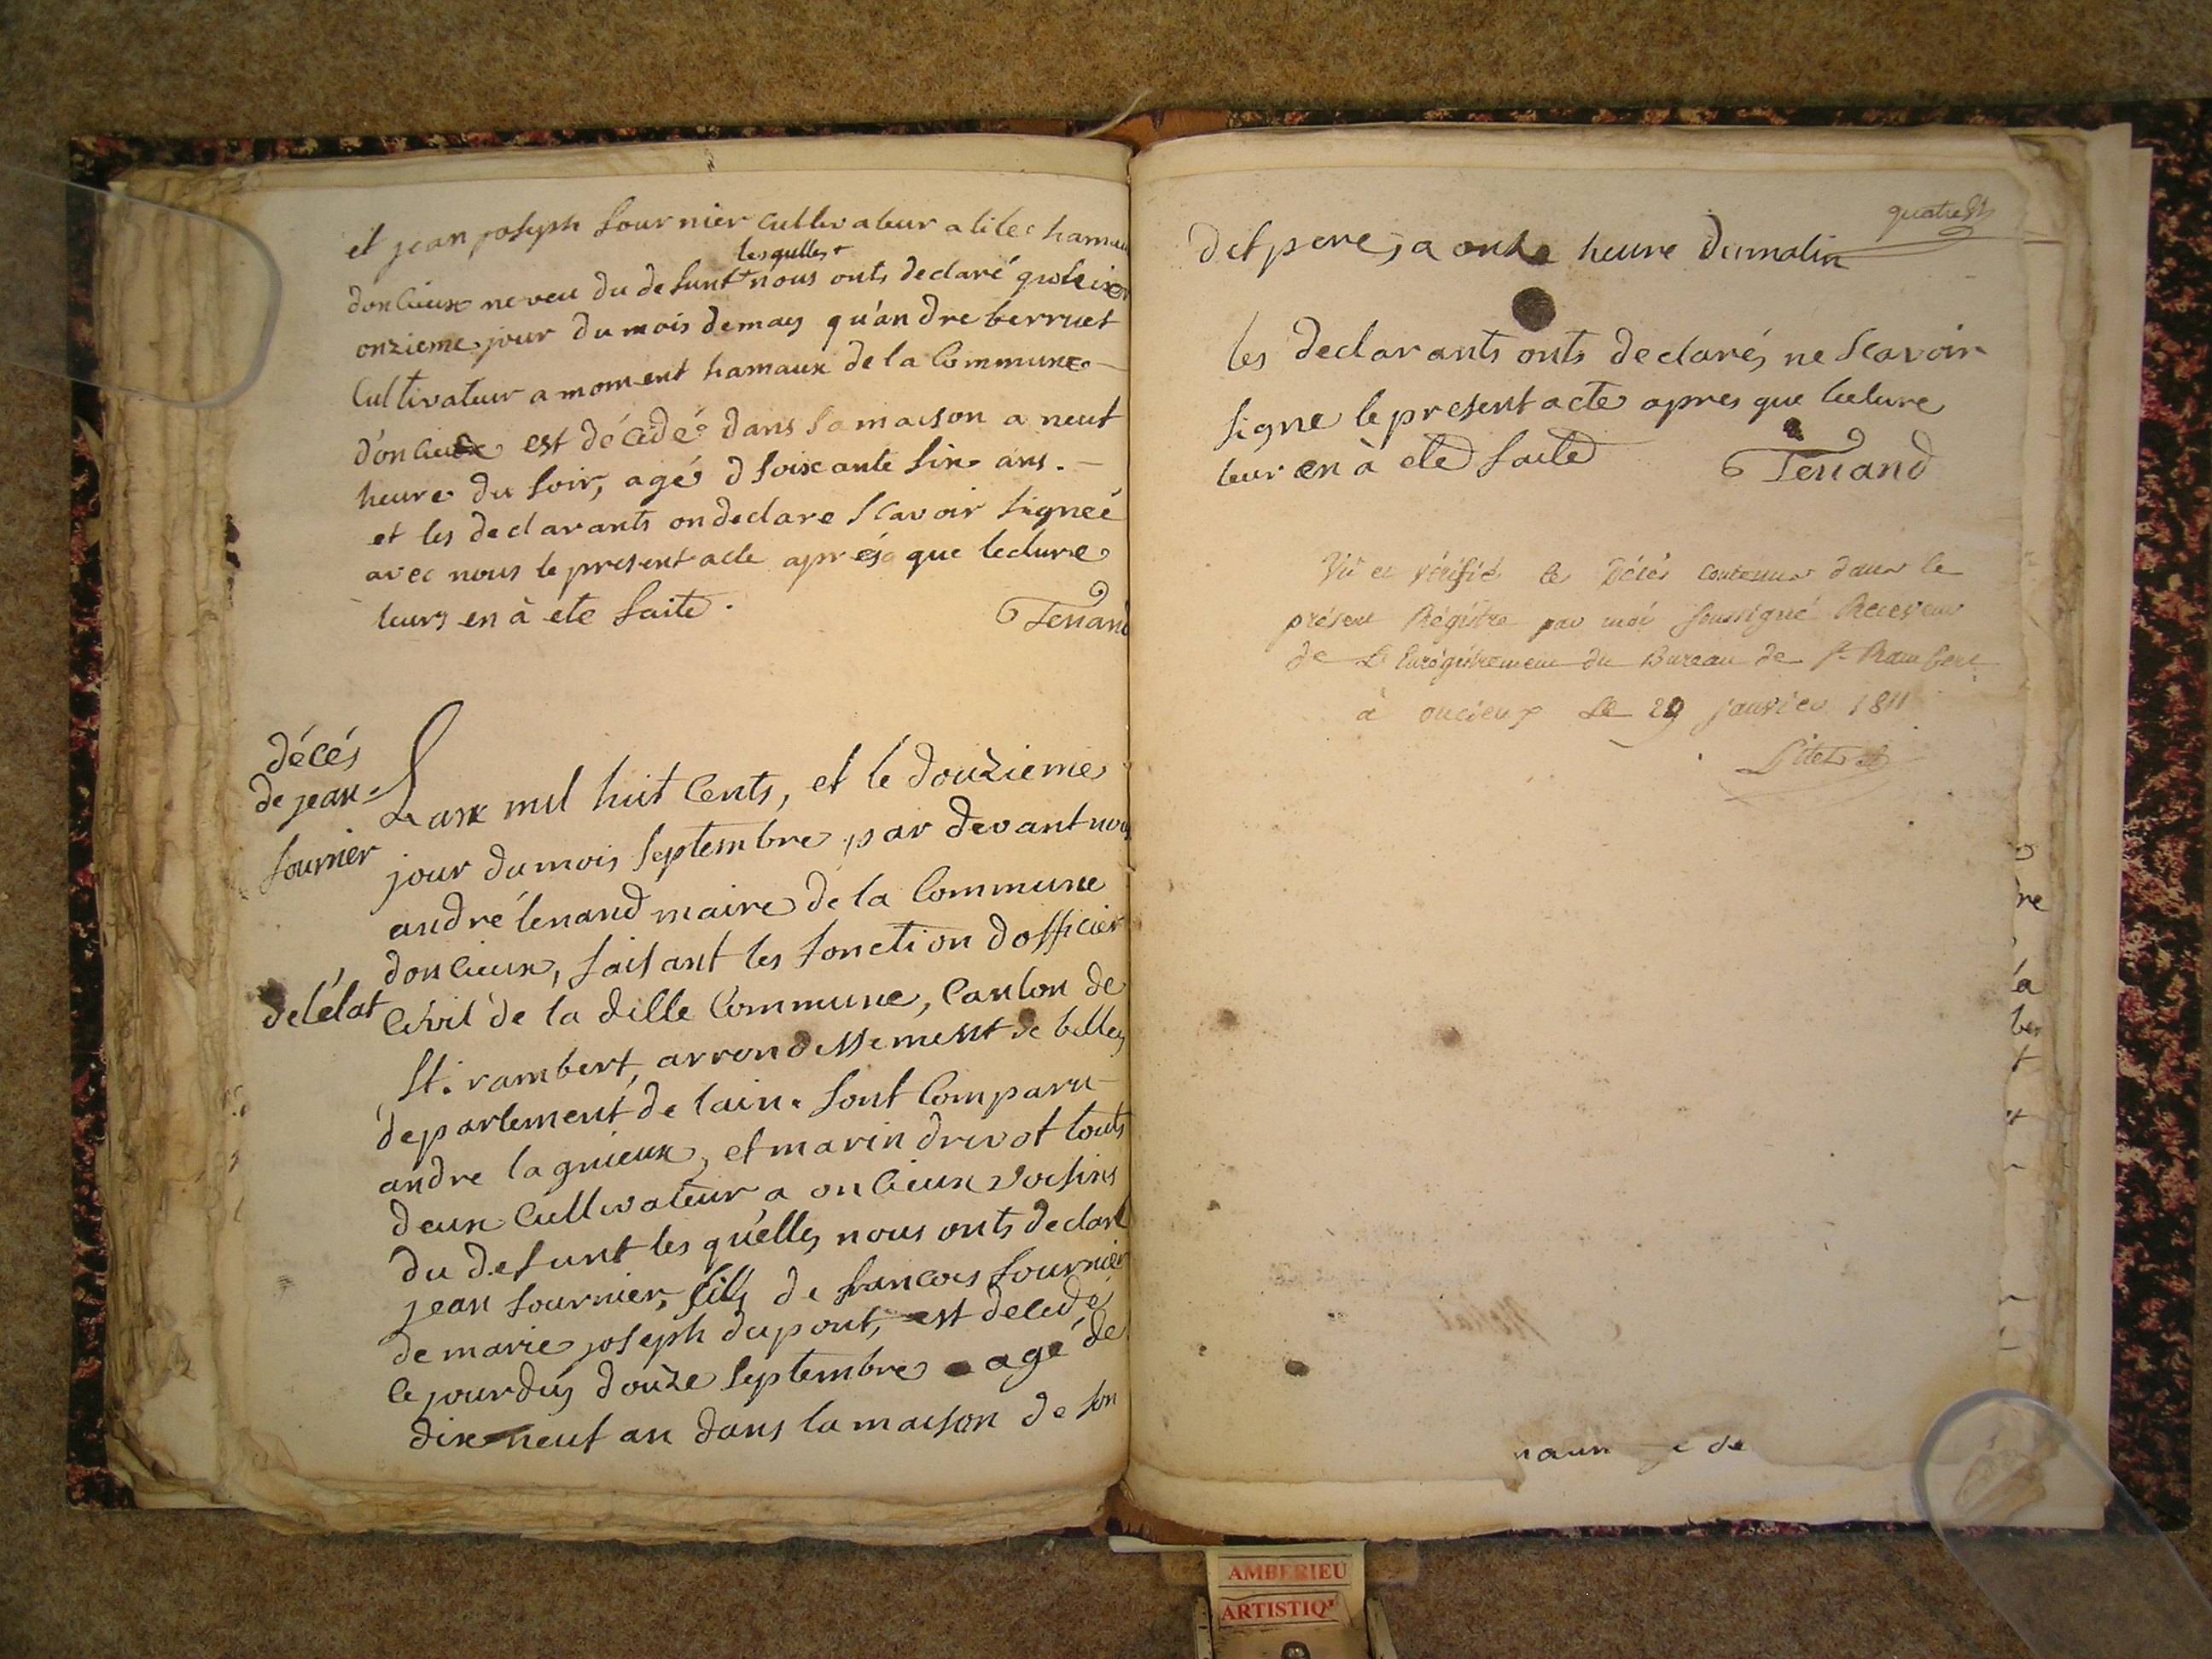 et jean joseph fournier cultivateur a hamau
lesquelles
doncieux neveu du defunt nous onts declaré
onzieme jour du mois demay qu'andre berruet
Cultivateur a moment hamaux de la Commune
d'oncieux est décédé dans sa maison a neuf
heure du soir, agé d soixante six ans.
et les declarants on declare scavoir signeé
avec nous le present acte aprés que lecture
leurs en à ete faite.
Tenand
décés
de jean
fournier
Lan mil huit Cents, et le douzieme
jour du mois septembre, par devant nous
andré tenand maire de la Commune
doncieux, faisant les fonction dofficier
de létat
Civil de la ditte Commune, Canton de
St. rambert, arrondissement de belley
departement de lain. sont Comparu
andre lagnieux, et marin drivot touts
deux Cultivateur a oncieux voisins
du defunt les quelles nous onts declaré
jean fournier, fils de francois fournier
de marie joseph dupont, est decede
le jourduy douze septembre agé de
dix neuf an dans la maison de son
quatre
dit pere, a onze heure du matin
les declarants onts declarés ne scavoir
signe le present acte apres que lecture
leur en à ete faite
Tenand
Vu et vérifié le Décès contenu dans le
présent Régistre par moi soussigné Receveur
de L'Enrégistrement du Bureau de St Rambert
à oncieux Le 29 janvier 1811
re
a
ber
t
naun e de
AMBERIEU
ARTISTIQ